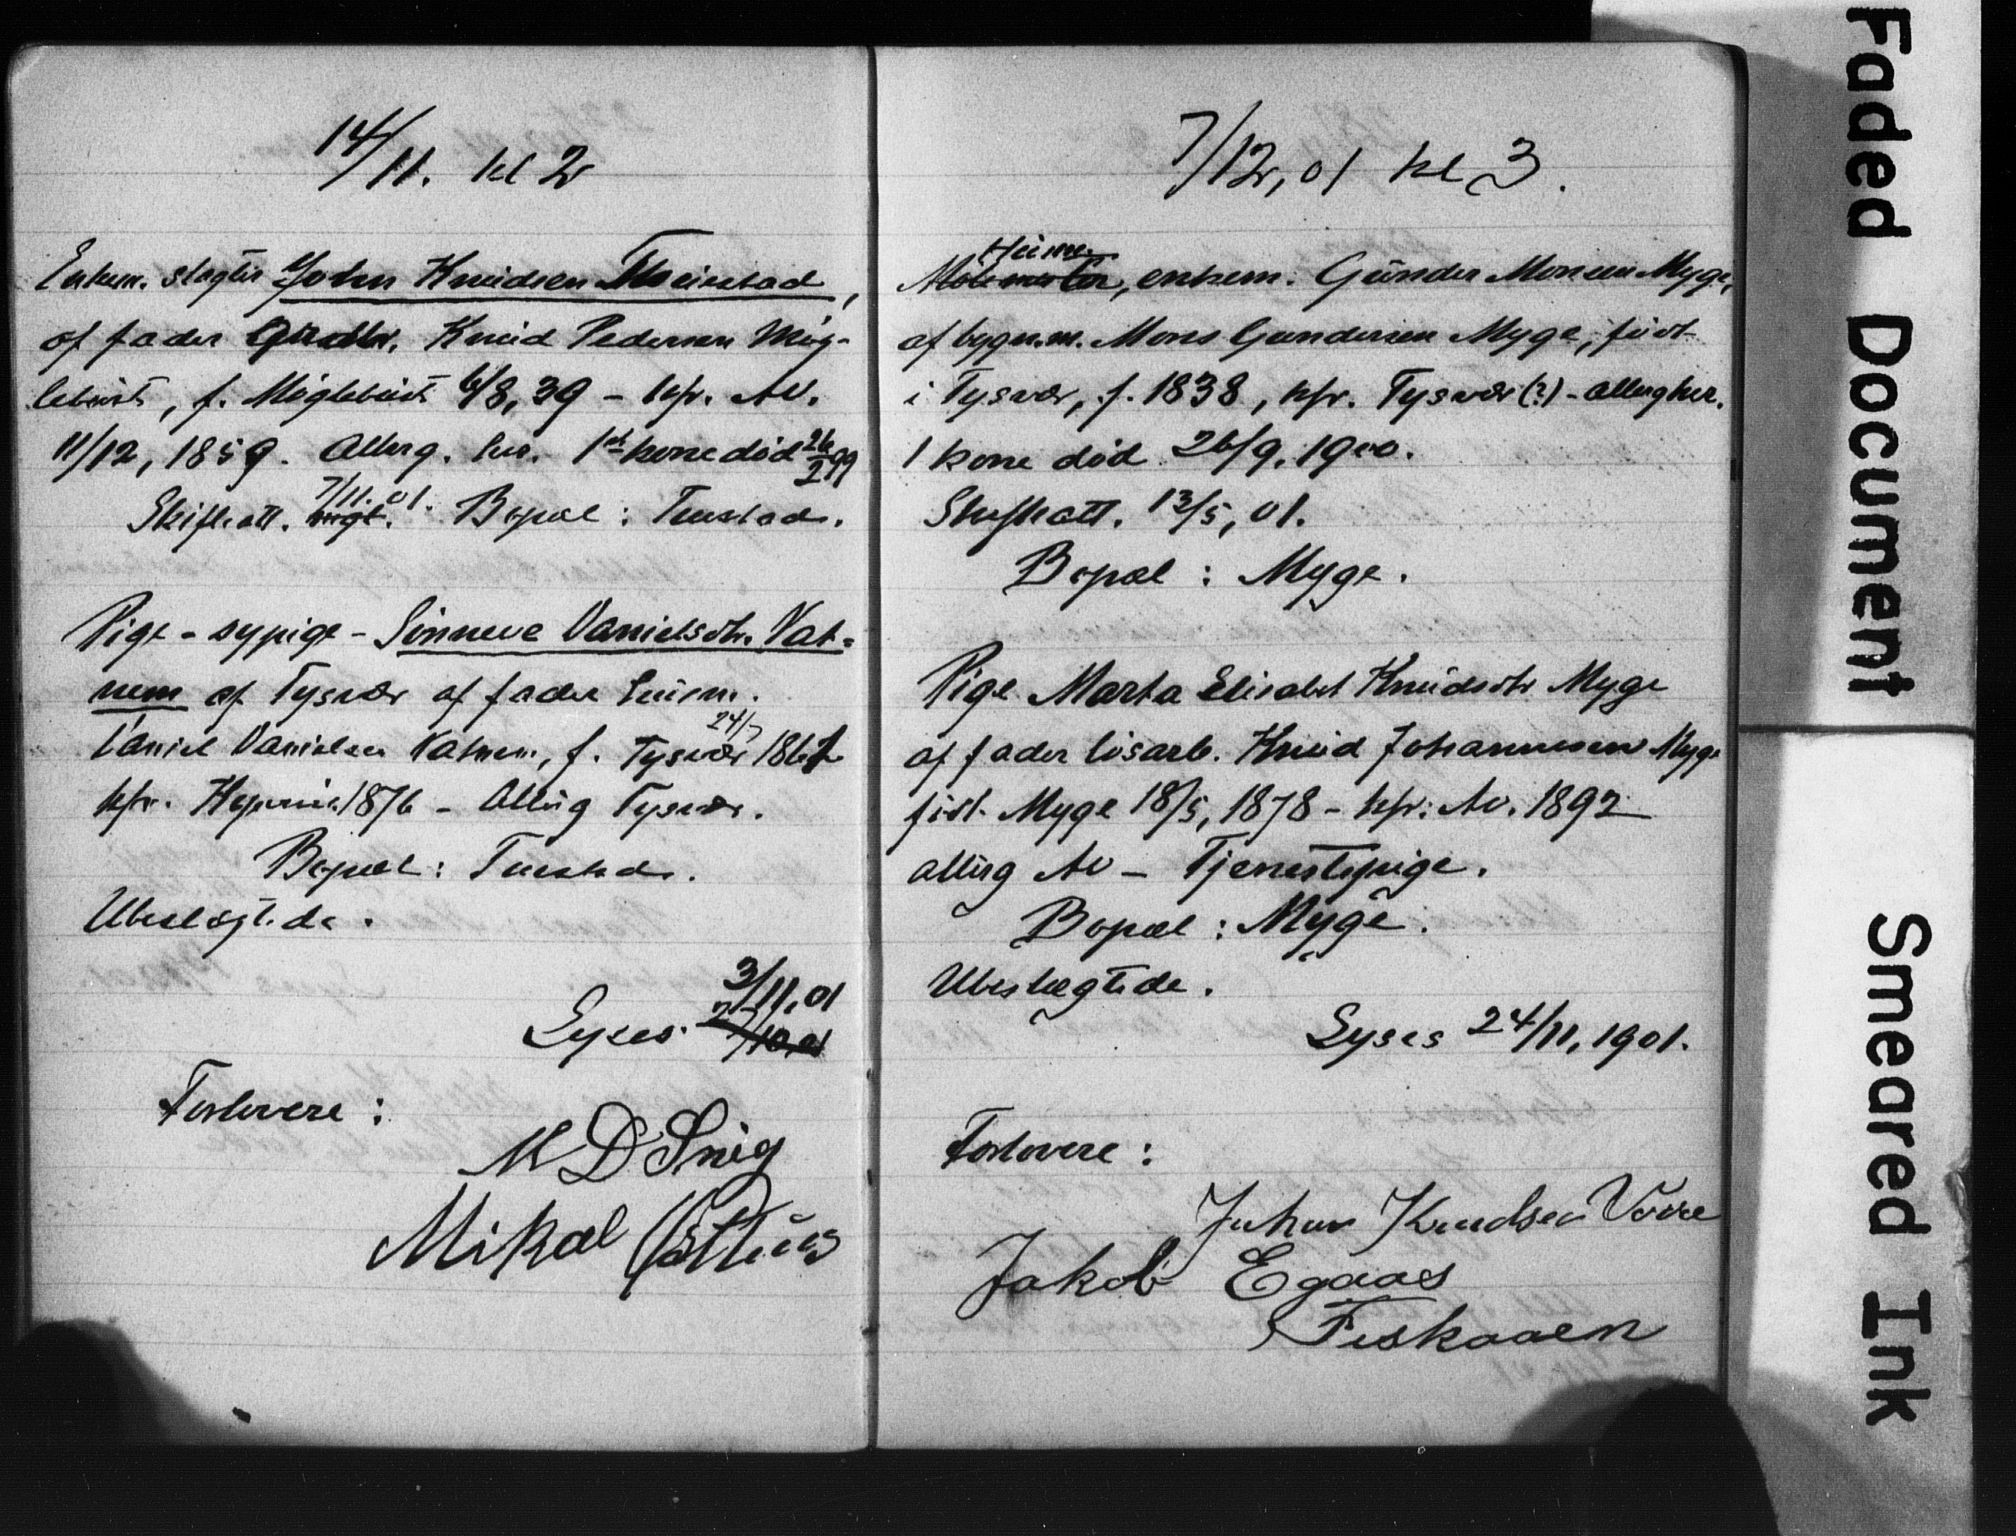 14/11. kl 2
Enkem. slagter John Knudsen Tueistad,
af fader Knud Pedersen Møg-
lebust, f. Møglebust 6/8, 39 – kfr. Av.
11/12, 1859. Alterg. her. 1ste kone død 26/2 99
Skifteatt. 7/11.01. Bopæl: Tuestad.
Pige - sypige - Sønneve Danielsdtr. Vat-
nem af Tysvær af fader husm.
Daniel Danielsen Vatnem, f. Tysvær 24/7 1861
kfr. 1876 – Alterg Tysvær.
Bopæl: Tuestad.
Ubeslægtede.
3/11, 01
Lyses. 27/10 01
Forlovere:
M D Snig
Mikal
7/12, 01 kl 3.
enkem. Gunder Monsen Myge,
af bygn.m. Mons Gundersen Myge, født
i Tysvær, f. 1838, kfr. Tysvær (?) - alterg her.
1 kone død 26/9, 1900.
Skifteatt. 13/5, 01.
Bopæl: Myge.
Pige Marta Elisabet Knudsdtr Myge
af fader løsarb. Knud Johannesen Myge
født Myge 18/5, 1878 – kfr: Av. 1892
alterg Av – Tjenestepige.
Bopæl: Myge.
Ubeslægtede.
Lyses 24/11, 1901.
Forlovere:
Johan Knudsen Vorre
Jakob Egaas
Feskaaen
Faded Document
Smeared Ink